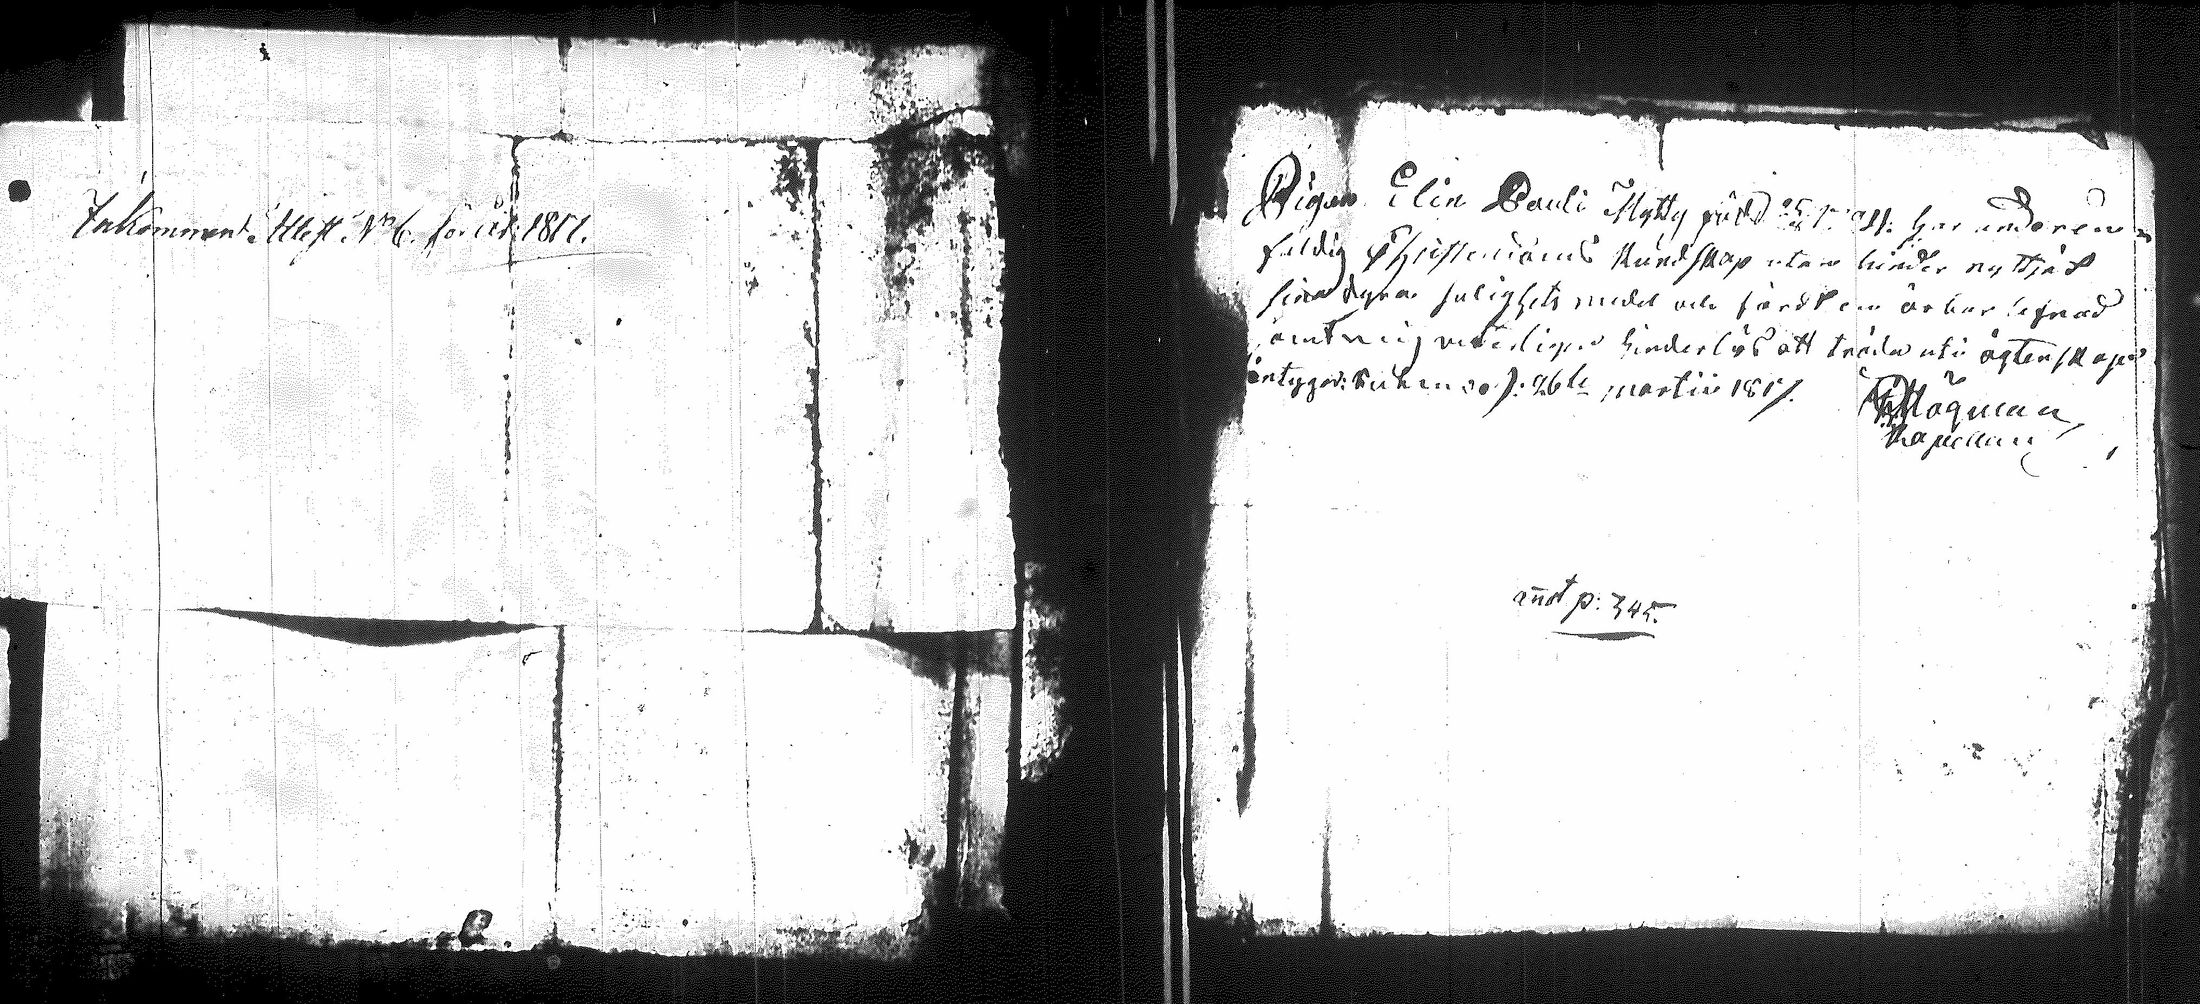 Inkomment Attest No 6. för år 1817.
Pigan Elin Pauli Mytty född 25/8 1794. har under en
faldig Christendoms Kundskap utan hinder nyttjat
sina dyra salighets medel och fördt en ärbar lefnad
samt mig veterligen hinderlös att träda uti ägtenskap
intygar: d: 26te martii 1817.
Högman
Kapellan
anot p: 345.